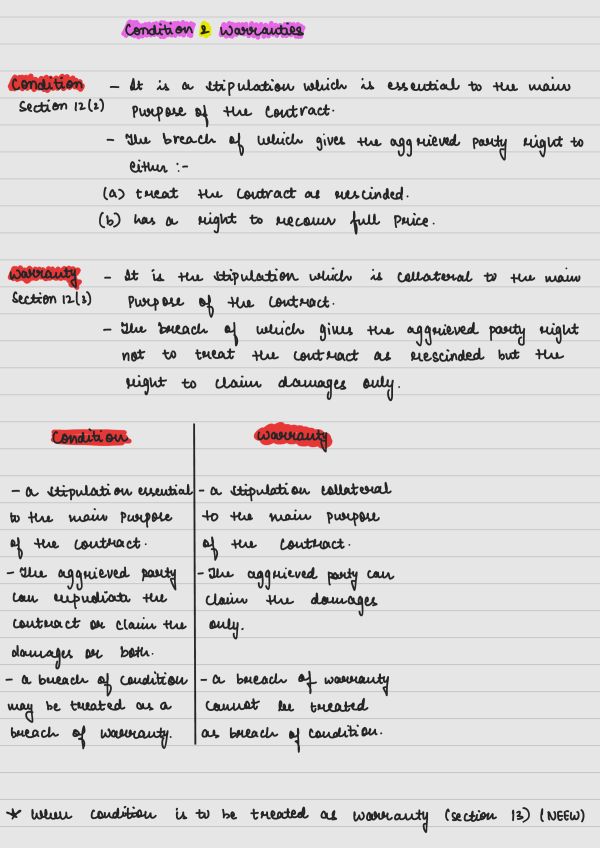 Condition & Warranties
Condition - It is a stipulation which is essential to the main
Section 12(2) purpose of the contract.
- The breach of which gives the aggrieved party right to
either :-
(a) treat the contract as rescinded.
(b) has a right to recover full price.
Warranty - It is the stipulation which is collateral to the main
Section 12(3) purpose of the contract.
- The breach of which gives the aggrieved party right
not to treat the contract as rescinded but the
right to claim damages only.
Condition
- a stipulation essential
to the main purpose
of the contract.
- The aggrieved party
can repudiate the
contract or claim the
damages or both.
- a breach of condition
may be treated as a
breach of warranty.
Warranty
- a stipulation collateral
to the main purpose
of the contract.
- The aggrieved party can
claim the damages
only.
- a breach of warranty
cannot be treated
as breach of condition.
* When condition is to be treated as warranty (section 13) (NEEW)